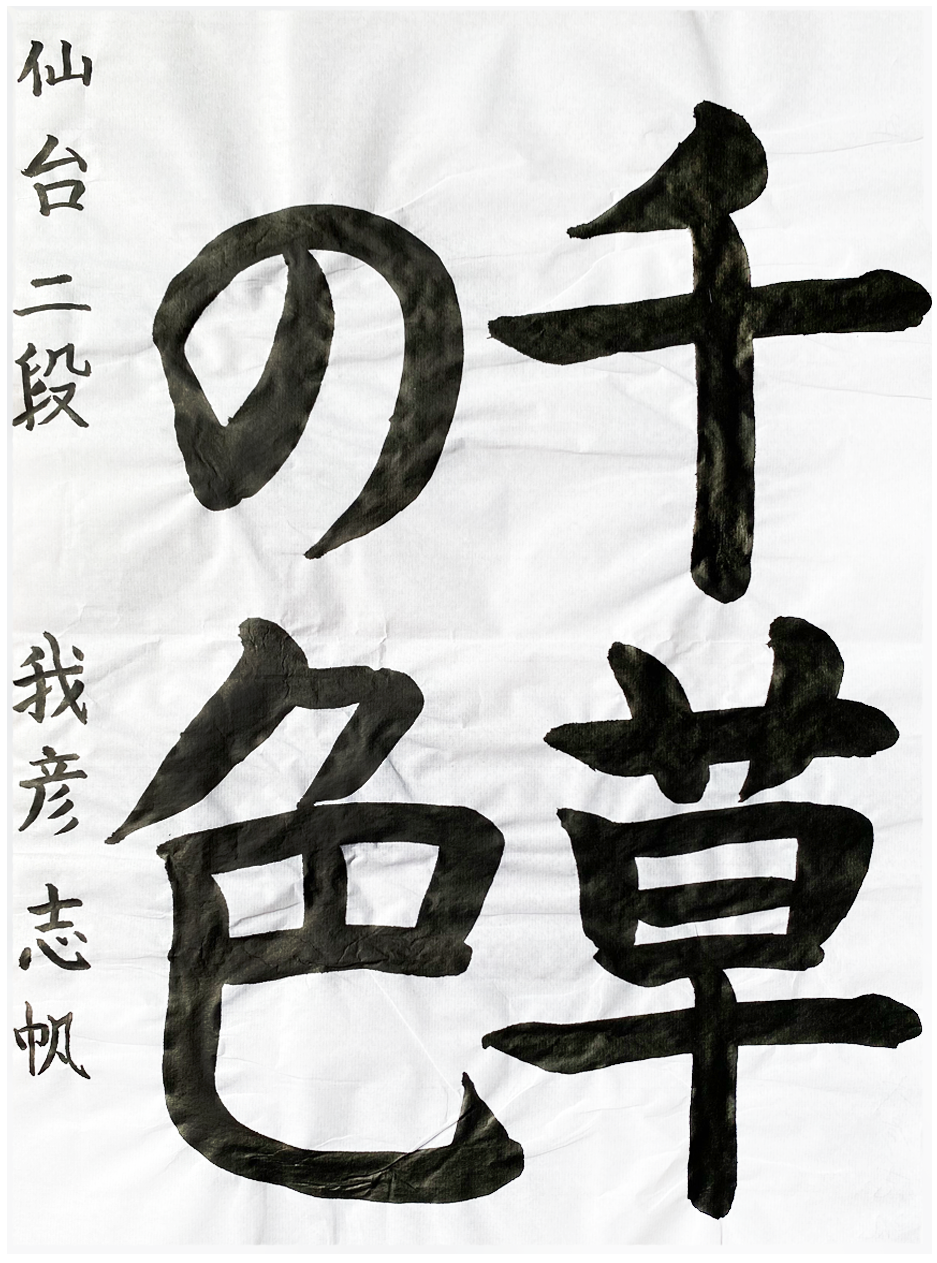 千草
の色
仙台二段 我彦志帆